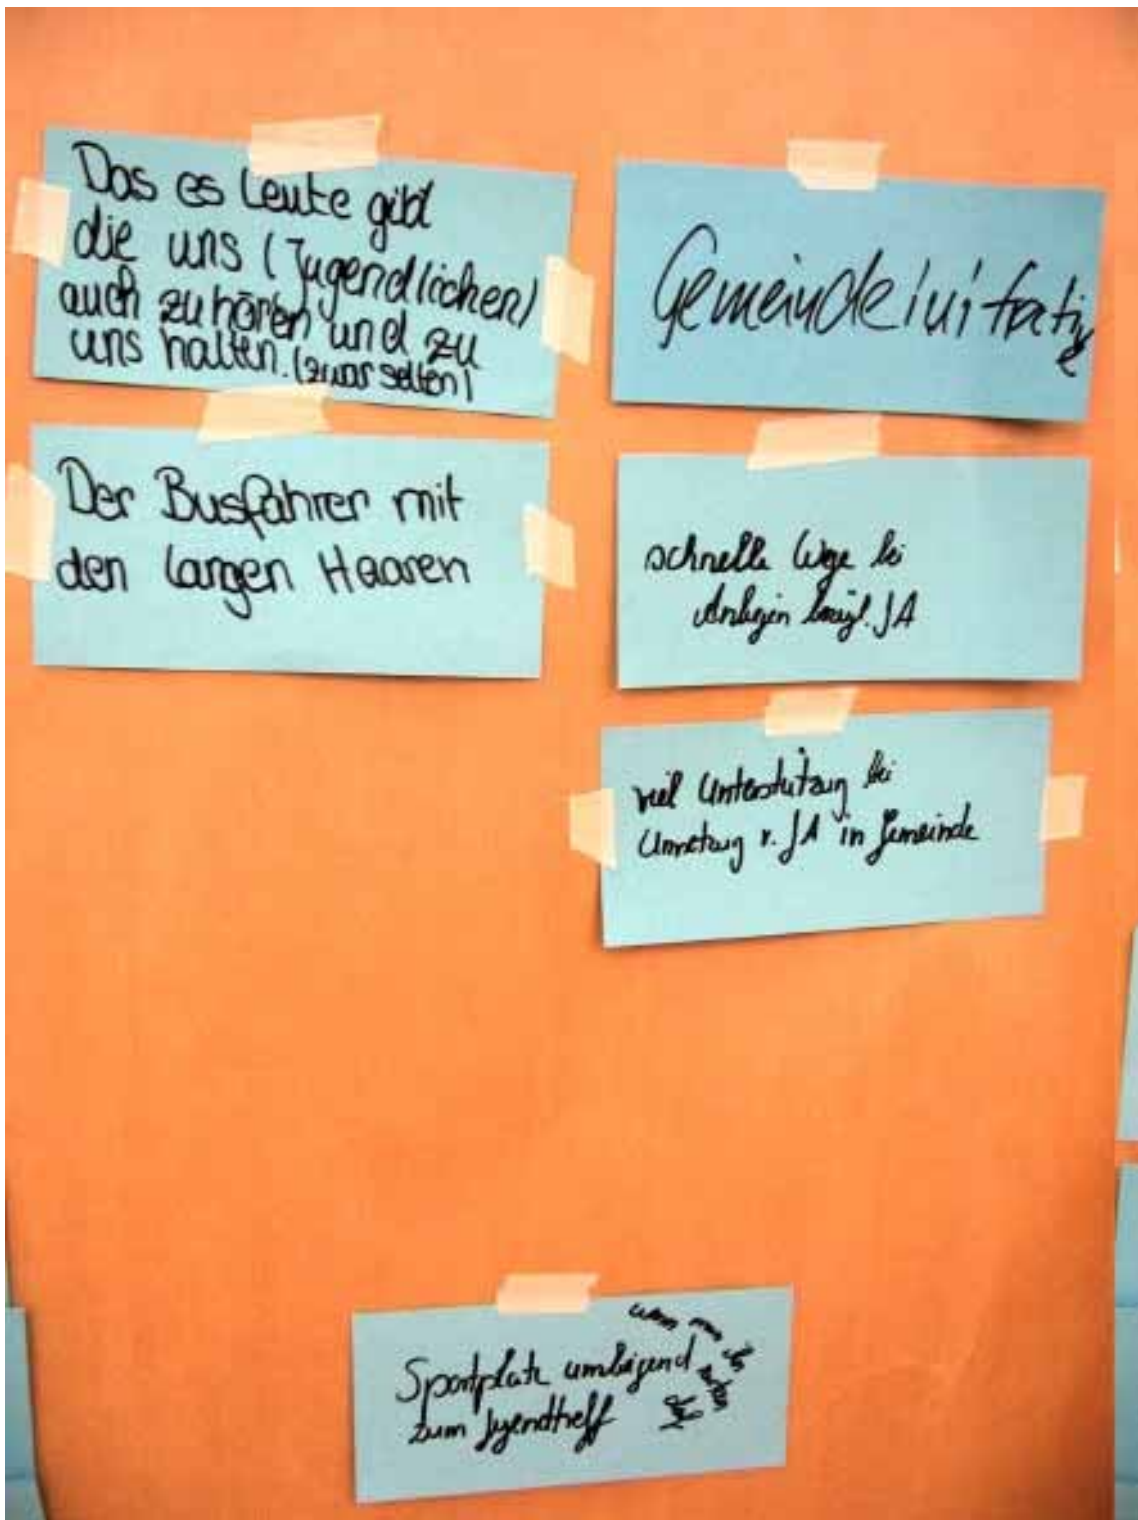 Das es Leute gibt
die uns (Jugendlichen)
auch zuhören und zu
uns halten. (zwar selten)
Der Busfahrer mit
den langen Haaren
Gemeindeinitiative
schnelle Wege bei
Anliegen bezügl. JA
viel Unterstützung bei
Umsetzung v. JA in Gemeinde
Sportplatz umliegend
zum Jugendtreff
wenn man ihn
nutzen
darf